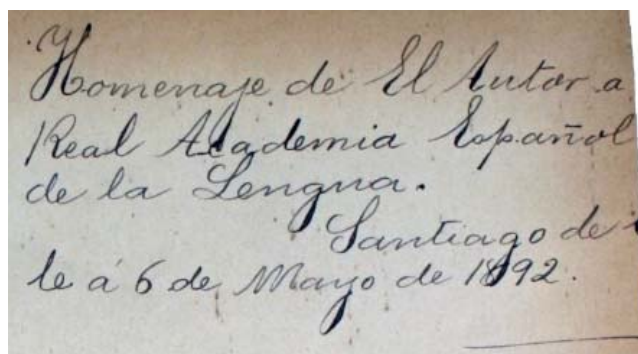 Homenaje de El Autor a
Real Academia Español
de la Lengua.
Santiago de
le á 6 de Mayo de 1892.